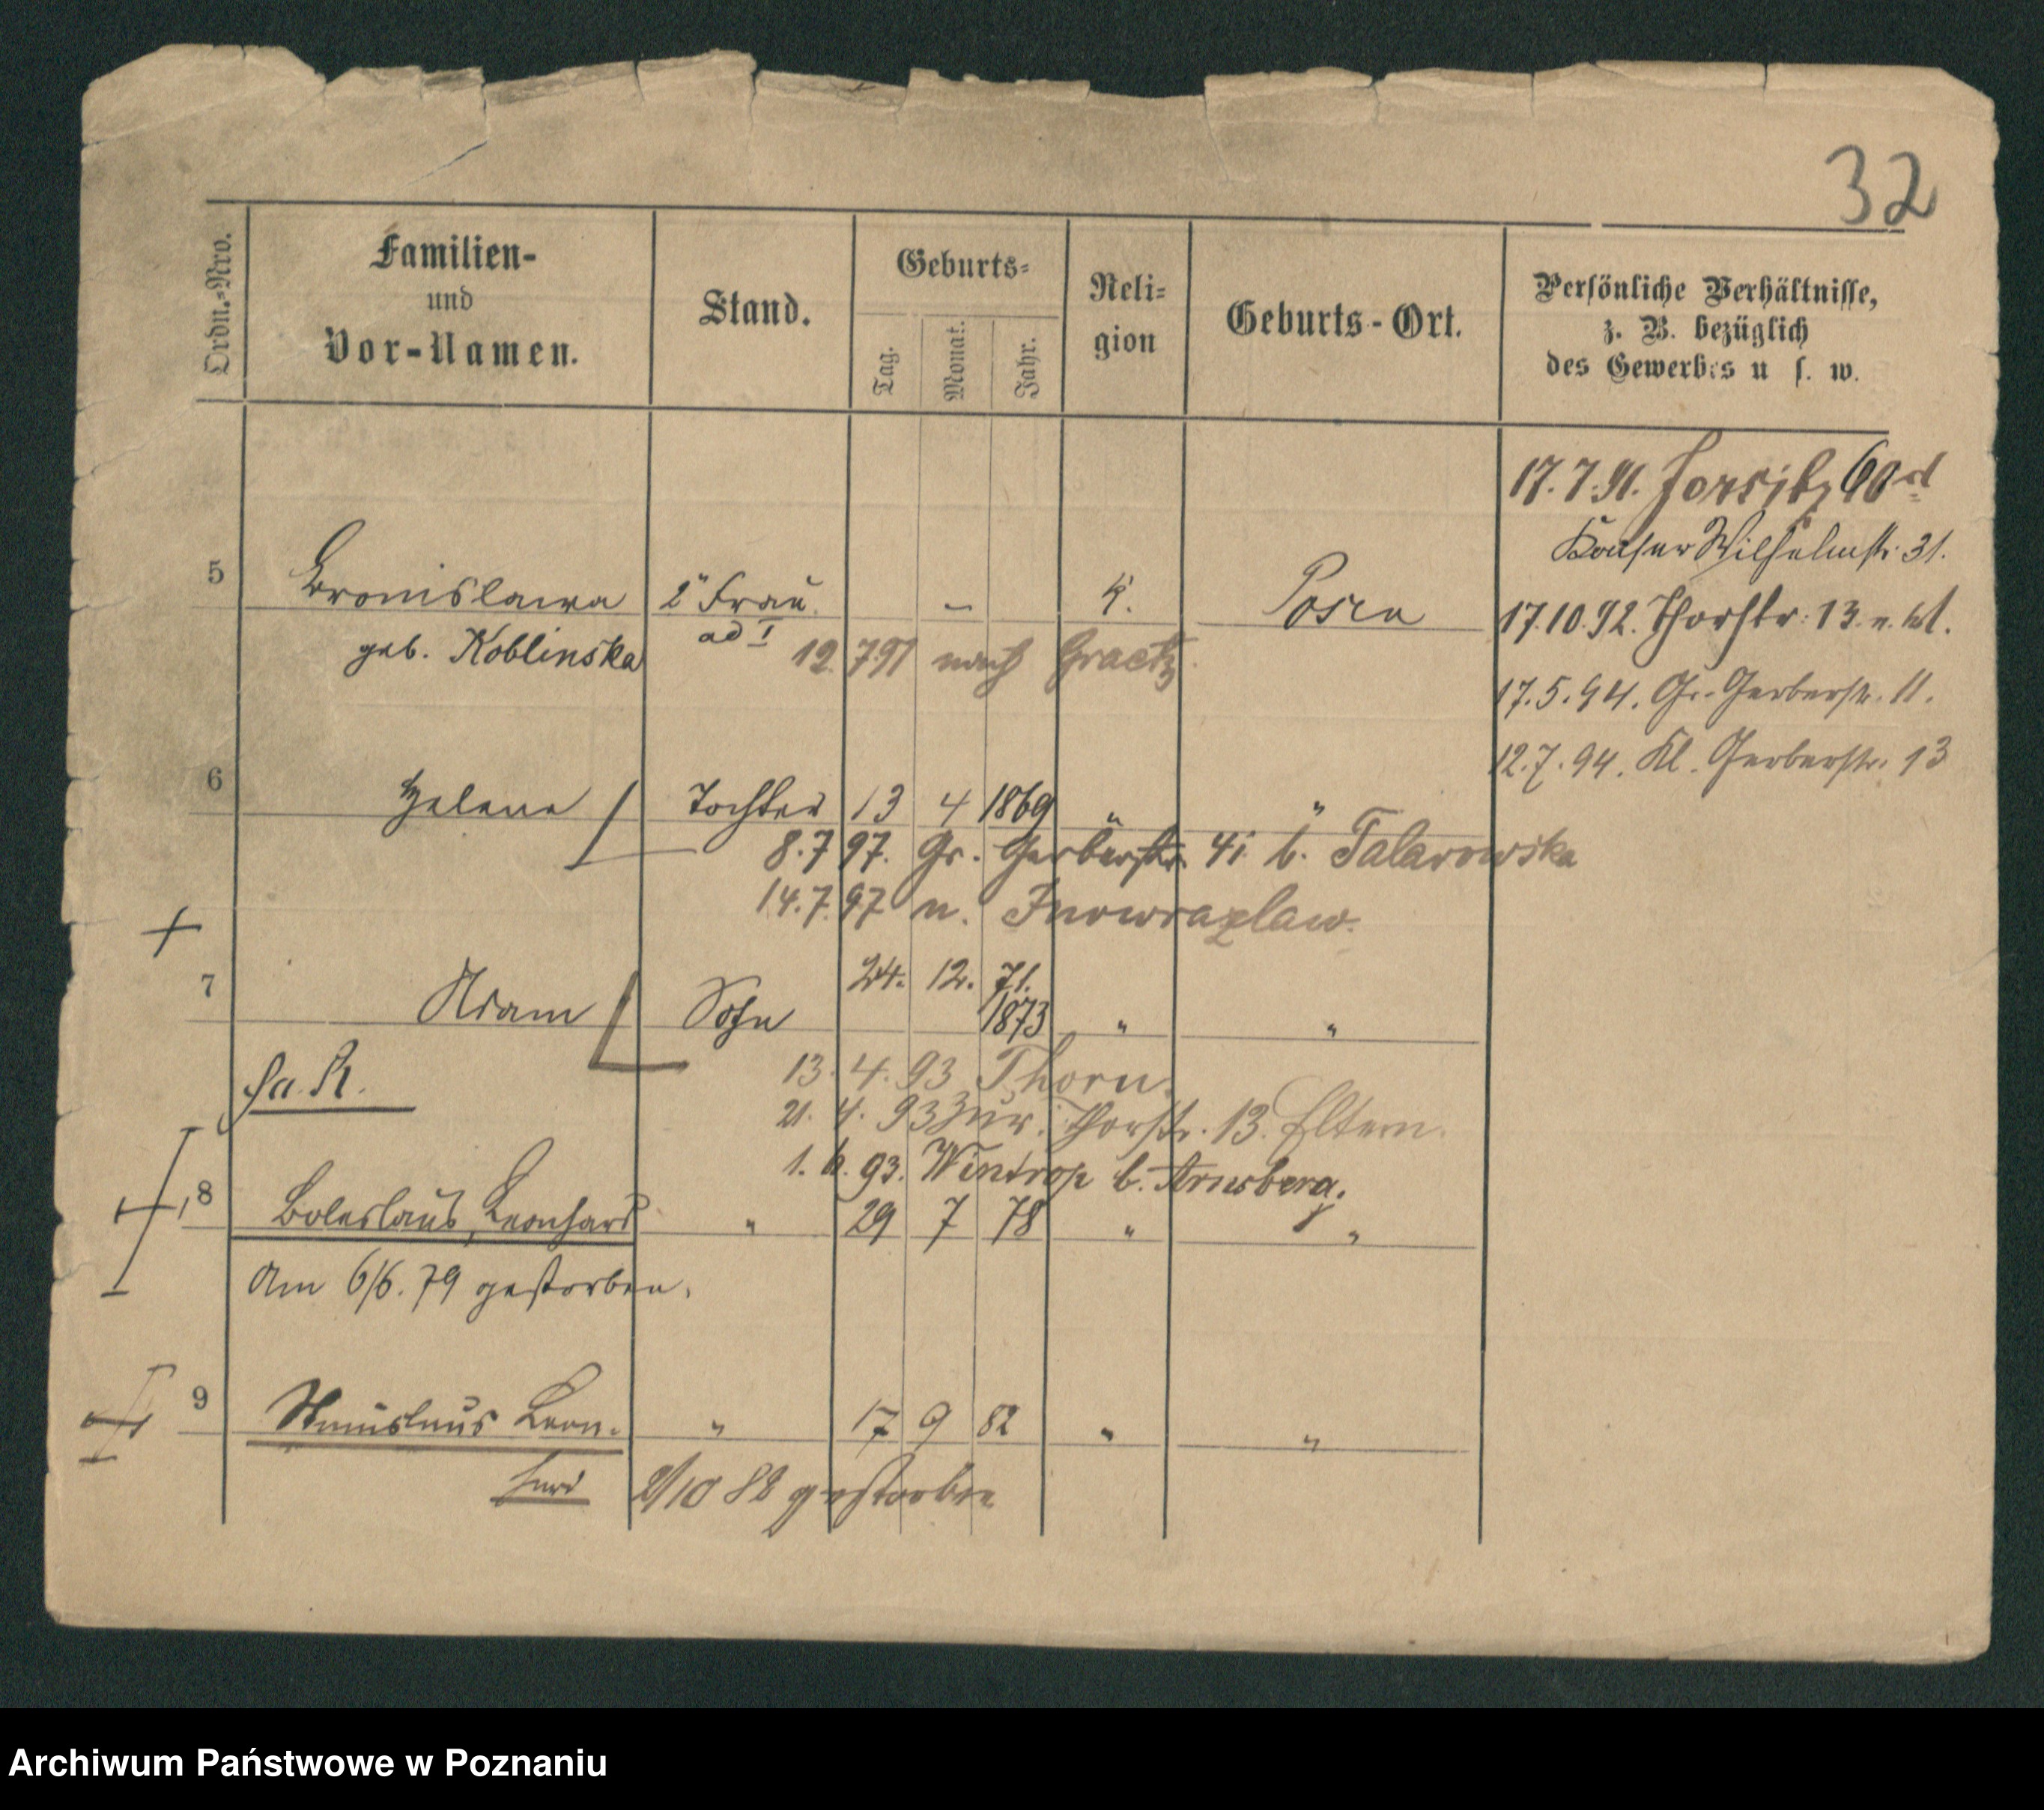 32
Ordn.-Nro.
Familien-
und
Vor-Namen.
Stand.
Geburts-
Tag.
Monat.
Jahr.
Reli-
gion
Geburts-Ort.
Persönliche Verhältnisse,
z. B. bezüglich
des Gewerbes u s. w.
17.7.91.
Kaiser Wilhelmstr. 31.
17.10.92. Thorstr. 13
17.5.94. Gr. Gerberstr. 11.
12.7.94. Kl. Gerberstr. 13
5 Bronislawa 2 Frau - K. Posen
geb. Koblinska ad I
12 7 91 nach Graetz
6 Helene Tochter 13 4 1869 " "
8.7 97. Gr. Gerberstr. 41 b. Talarowska
14.7.97 n. Inowrazlaw.
24. 12. 71.
7 Adam Sohn 1873 " "
13. 4. 93 Thorn.
21. 4. 93 zur. Thorstr. 13. Eltern.
1. 6. 93. Wintrop b. Arnsberg.
8 Boleslaus, Leonhard " 29 7 78 " "
Am 6/6. 79 gestorben.
9 Stanislaus Leon- " 17 9 82 " "
hard 2/10 82 gestorben
Archiwum Państwowe w Poznaniu